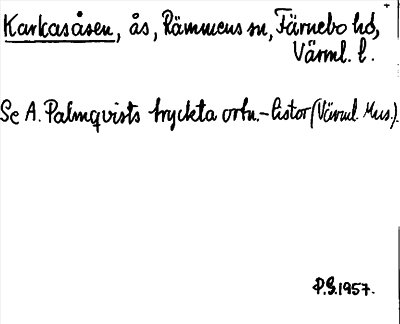 Karkasåsen, ås, Rämmens sn, Färnebo hd,
Värml. l.
Se A. Palmqvists tryckta ortn.-listor (Värml. Mus.).
P.G. 1957.